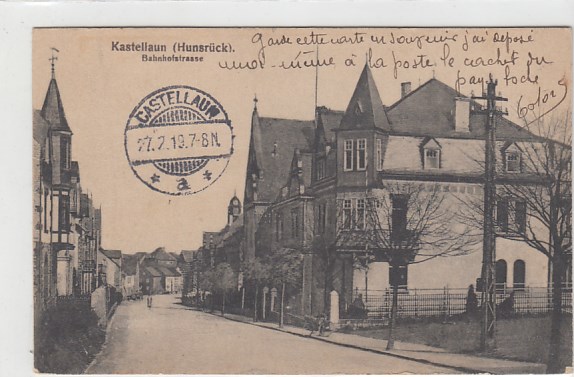 Kastellaun (Hunsrück).
Bahnhofstrasse
Garde cette carte en souvenir j'ai déposé
moi-même à la poste le cachet du
pays
CASTELLAUN
27.2.19.7-8N.
* a *